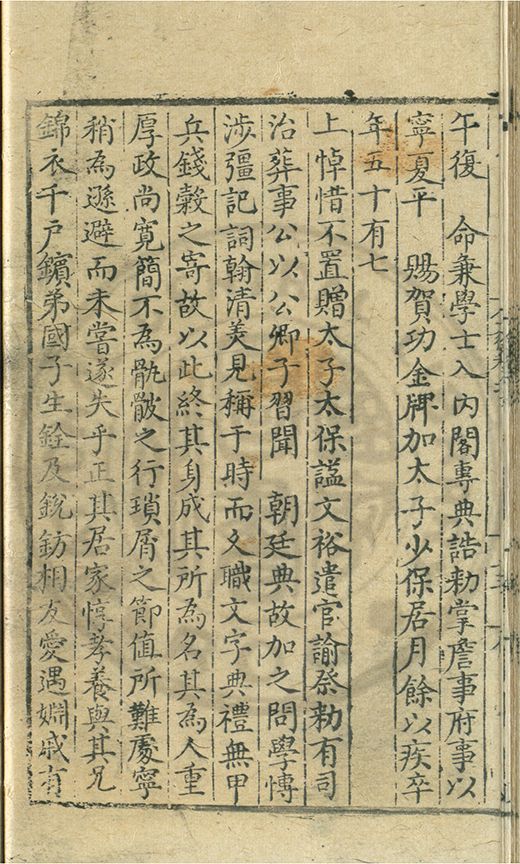 午復　命兼學士入內閣專典誥勑掌詹事府事以
寧夏平　賜賀功金牌加太子少保居月餘以疾卒
年五十有七
上悼惜不置贈太子太保謚文裕遣官諭祭勑有司
治葬事公以公卿子習聞　朝廷典故加之問學愽
涉彊記詞翰清美見稱于時而久職文字典禮無甲
兵錢穀之寄故以此終其身成其所為名其為人重
厚政尚寬簡不為骫骳之行瑣屑之節值所難處寧
稍為遜避而未嘗遂失乎正其居家惇孝養與其兄
錦衣千戶鑌弟國子生銓及銳鈁相友愛遇婣戚有